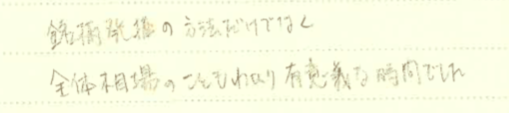 銘柄発掘の方法だけでなく
全体相場のこともわかり有意義な時間でした